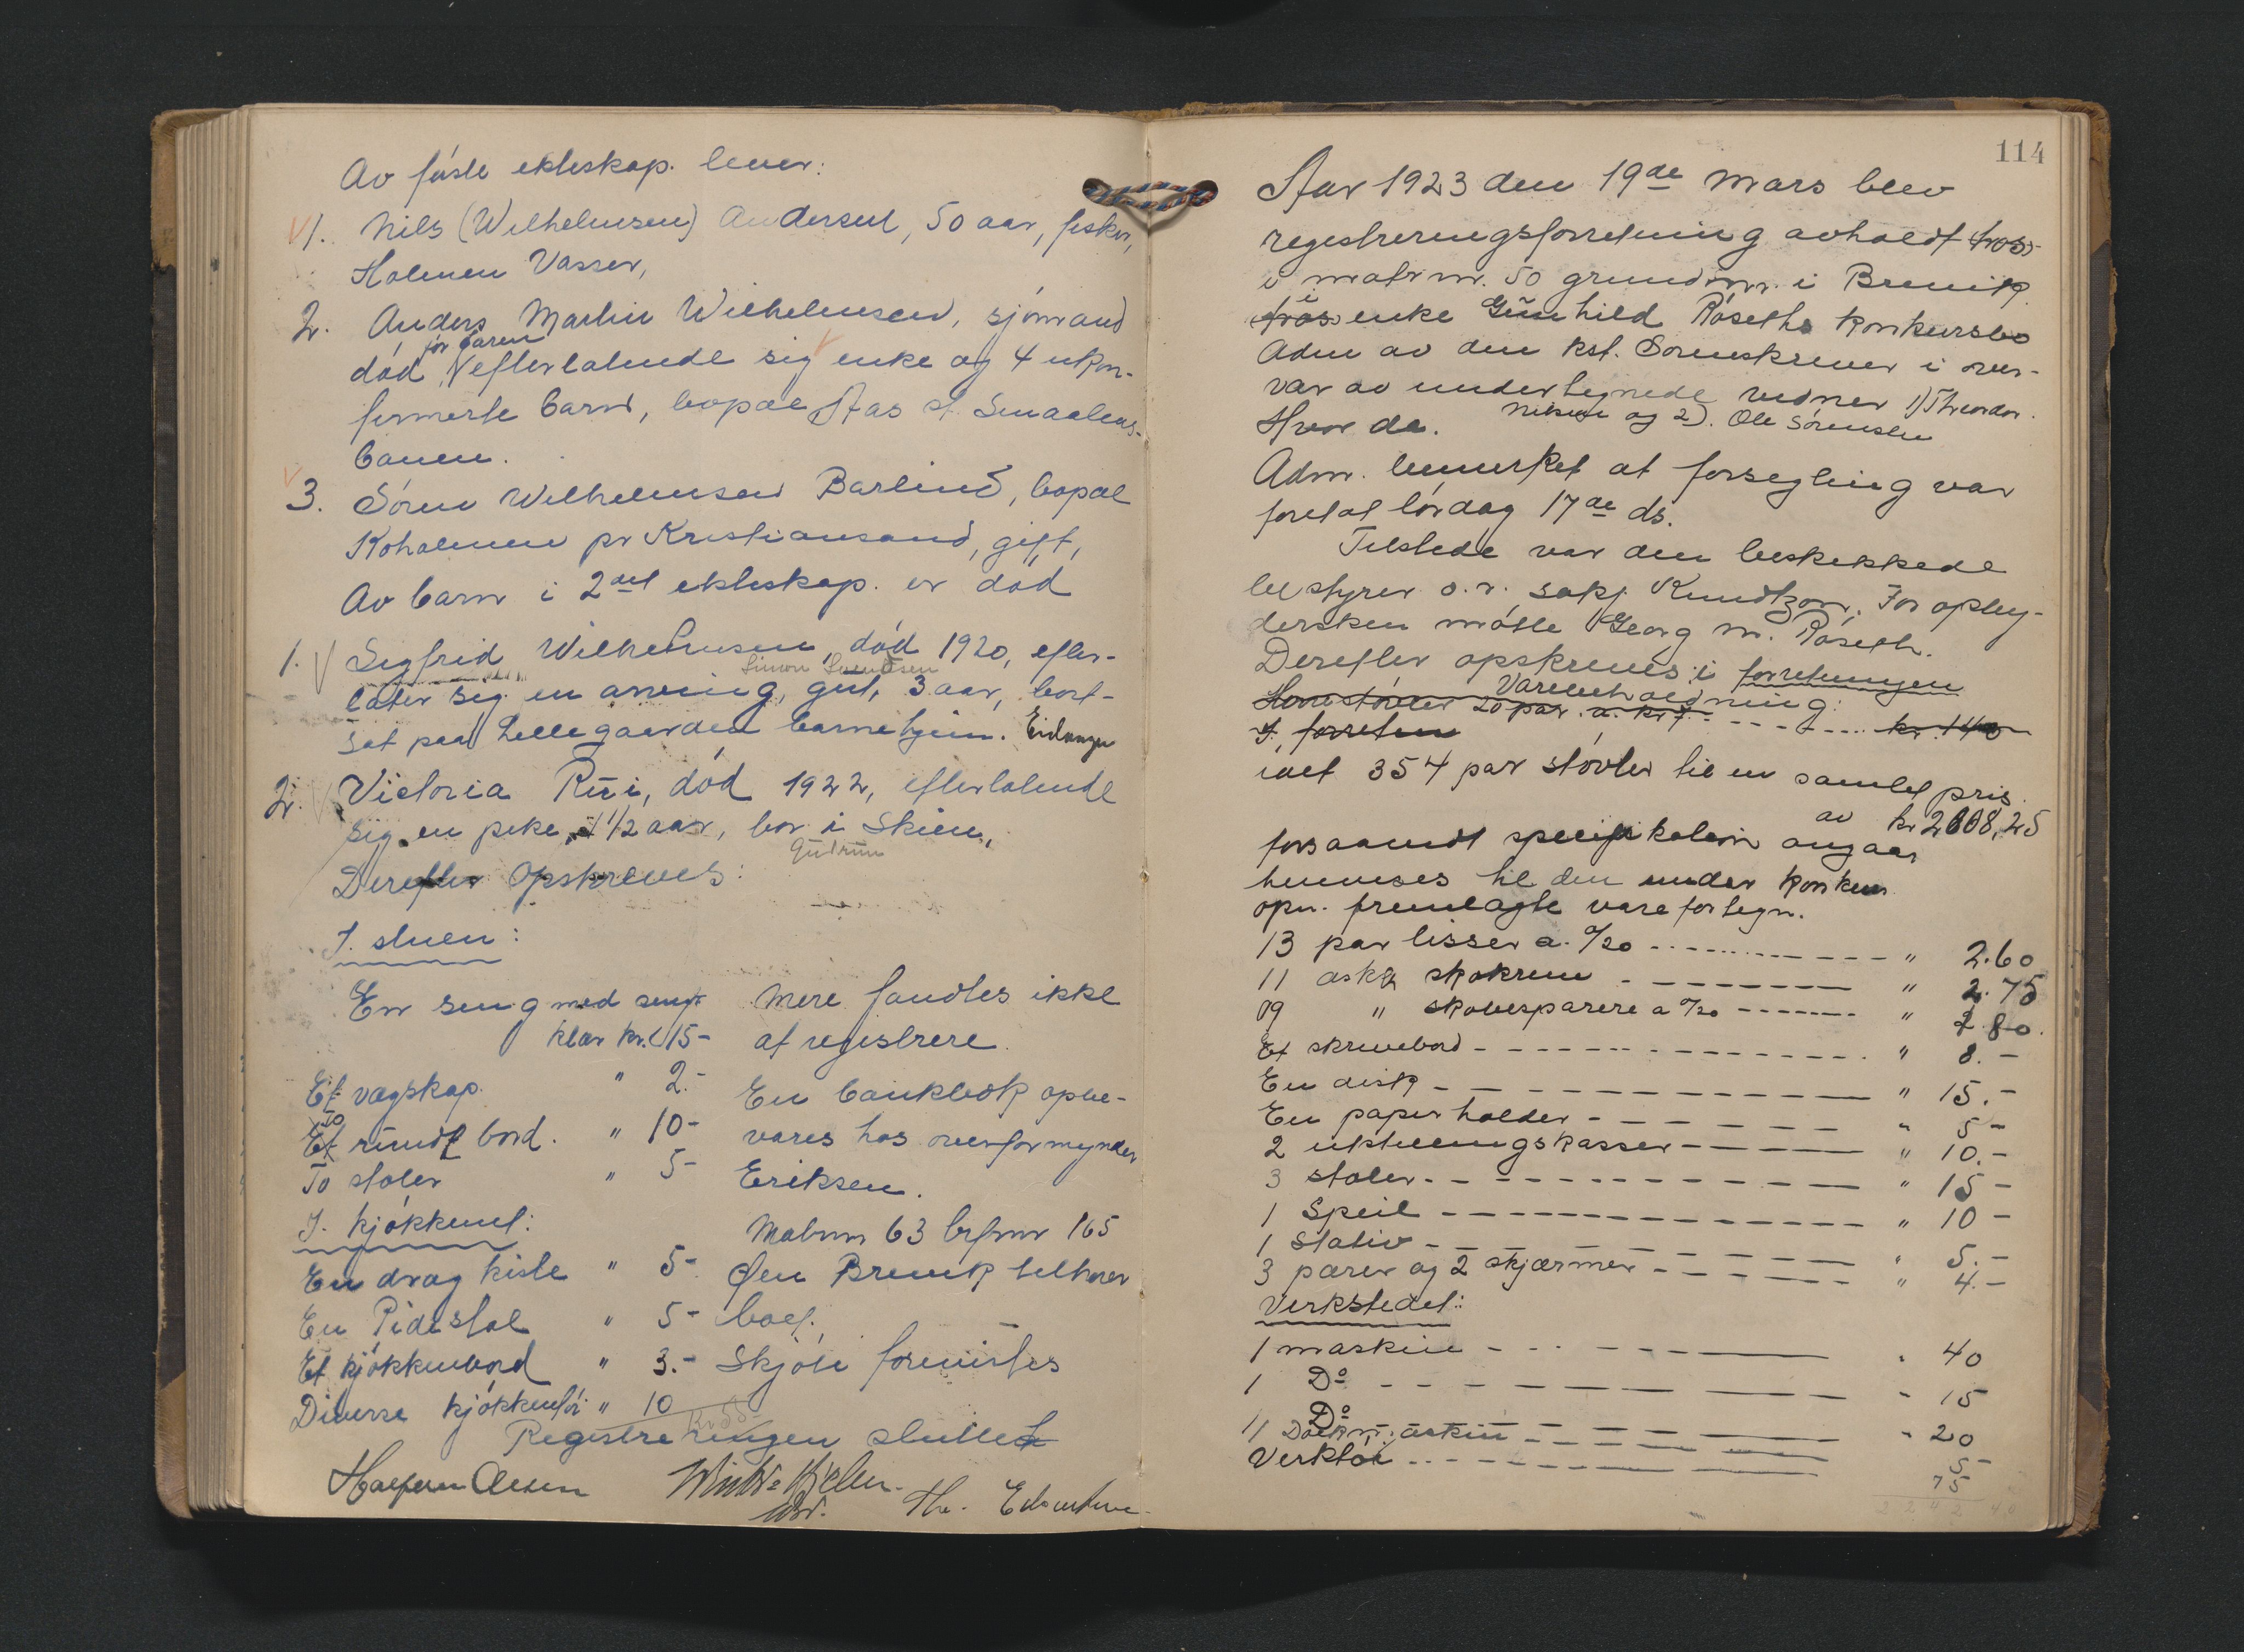 Av første ekteskap. lever:
1. Nils (Wilhelmsen) Andersen, 50 aar, fisker,
Holmen Vasser,
2. Anders Martin Wilhelmsen, sjømand
død, efterlatende sig enke og 4 ukon-
for faren
firmerte barn, bopæl Aas st. Smaalens-
banen.
3. Søren Wilhelmsen Barlind, bopæl
Koholmen pr Kristiansand, gift,
Av barn i 2det ekteskap. er død
1. Sigfrid Wilhelmsen, død 1920, efter-
Simon Svendsen
later sig en arving, gut, 3 aar, bort-
sat paa Lillegaarden barnehjem. Eidanger
2. Victoria Rui, død 1922, efterlatende
sig en pike, 1 1/2 aar, bor i Skien,
Gudrun
Derefter opskreves:
I. stuen:
En seng med seng-
klær kr. 15-
Et vægskap. " 2.-
To
Et rundt bord. " 10-
To stoler " 5-
I. kjøkkenet:
En dragkiste " 5-
En Pidestal " 5-
Et kjøkkenbord " 3.-
Diverse kjøkkentøi " 10
Mere fandtes ikke
at registrere
En bankbok opbe-
vares hos overformynder
Eriksen.
Matrnr 63 brnr 165
Øen Brevik tilhører
boet.
Skjøte forevistes
Registreringen sluttet
Halfdan Olsen
Th.
114
Aar 1923 den 19de Mars blev
registreringsforretning avholdt hos
i matr nr. 50 grundnr. i Brevik
i
hos enke Gunhild Røseths konkursbo
Adm av den kst. Sorenskriver i over-
vær av undertegnede vidner 1) Theodor
Nilsen og 2). Ole Sørensen
Hvor da.
Adm. bemerket at forsegling var
foretat lørdag 17de ds.
Tilstede var den beskikkede
bestyrer o.r. sakf. Knudtzon. For opby-
dersken møtte Georg M. Røseth.
Derefter opskreves i forretningen
Varebeholdning:
Herrestøvler 20 par a. kr 7 kr. 140
I. forretn
ialt 354 par støvler til en samlet pris
av kr 2608,25
forsaavidt specifikation angaar
henvises til den under konkurs
opn. fremlagte varefortegn.
13 par lisser a. 0/20 " 2.60
11 æsker skokrem " 2.75
19 " skobesparere a 0/20 " 2.80.
Et skrivebord " 8.-
En disk " 15.-
En papirholder " 5-
2 utstillingskasser " 10.-
3 stoler " 15-
1 Speil " 10-
1 Stativ " 5.-
3 pærer og 2 skjærmer " 4.-
Verkstedet:
1 maskin " 40
1 Do " 15
1 Do " 20
Verktøi 5-
75